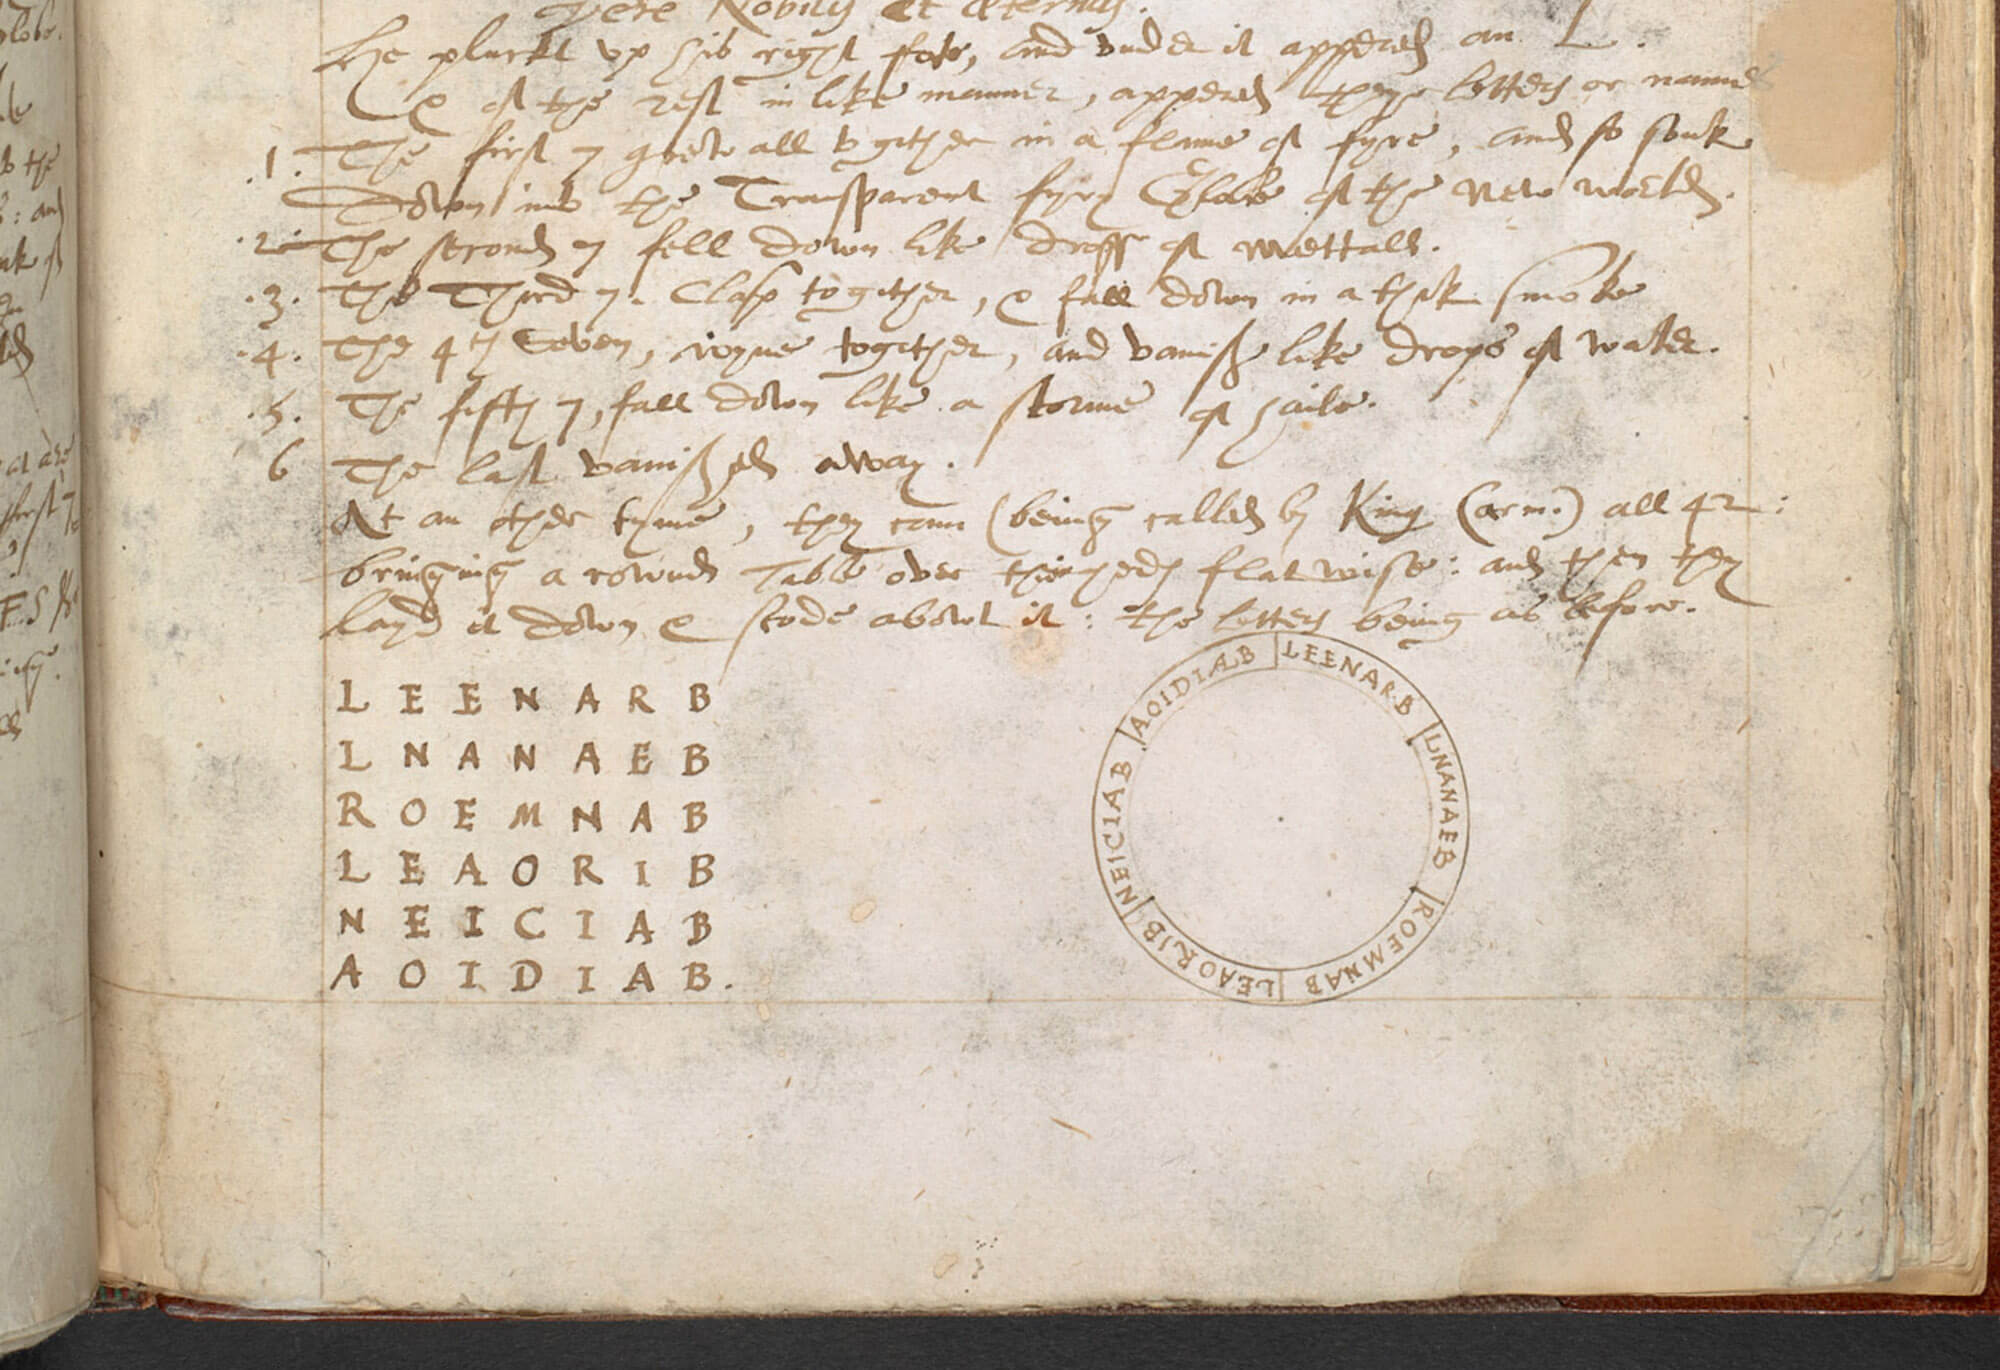 vere Nobilis et Æternus.
He pluckt vp his right fote, and vnder it appered an L.
& of the rest in like manner, appered theyr letters or names
.1. The first 7 grew all togither in a flame of fyre, and so sonk
down into the Transparent fyry Globe of the New World.
.2. The second 7 fell down like drosse of mettall.
.3. The Third 7. Clasp togither, & fall down in a thik smoke
.4. The 4th Seven, ioyne togither, and vanish like drops of water.
.5. The fifth 7, fall down like a storme of haile.
6 The last vanished away.
At an other tyme, they cam (being called by King Carm.) all 42:
bringing a rownd Table over theyr heds flat wise: and then they
layd it down & stode abowt it: the letters being as before.
L E E N A R B
L N A N A E B
R O E M N A B
L E A O R I B
N E I C I A B
A O I D I A B.
LEENARB
LNANAEB
ROEMNAB
LEAORIB
NEICIAB
AOIDIAB